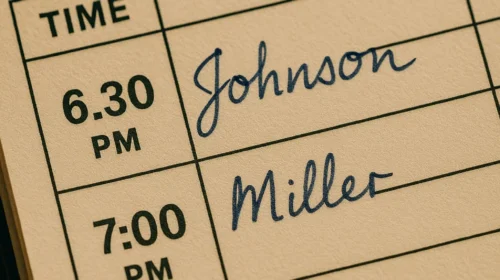 TIME
6.30 PM Johnson
7:00 PM Miller